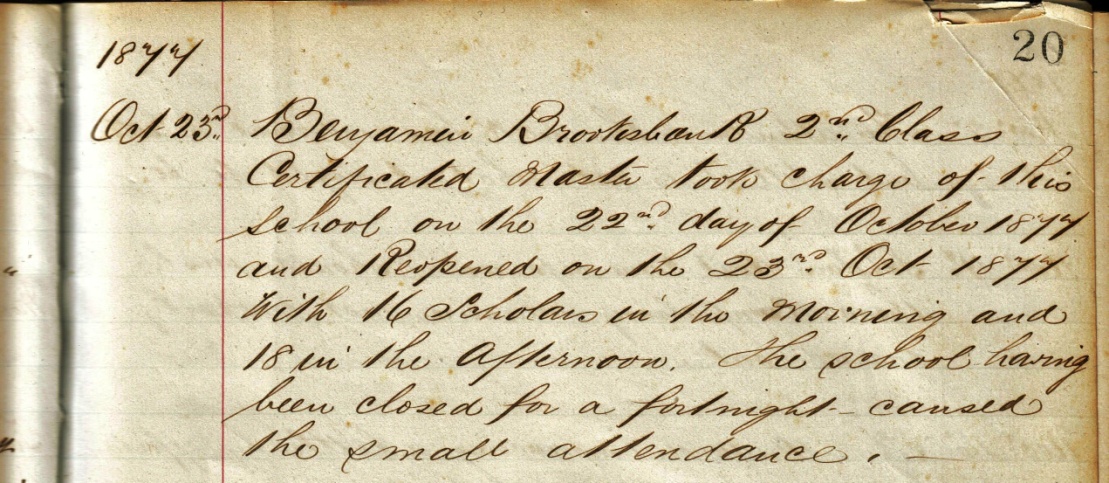 20
1877
Oct 23rd. Benjamin Brooksbank 2nd. Class
Certificated Master took charge of this
school on the 22nd. day of October 1877
and Reopened on the 23rd. Oct. 1877
With 16 Scholars in the Morning and
18 in the Afternoon. The school having
been closed for a fortnight - caused
the small attendance. -